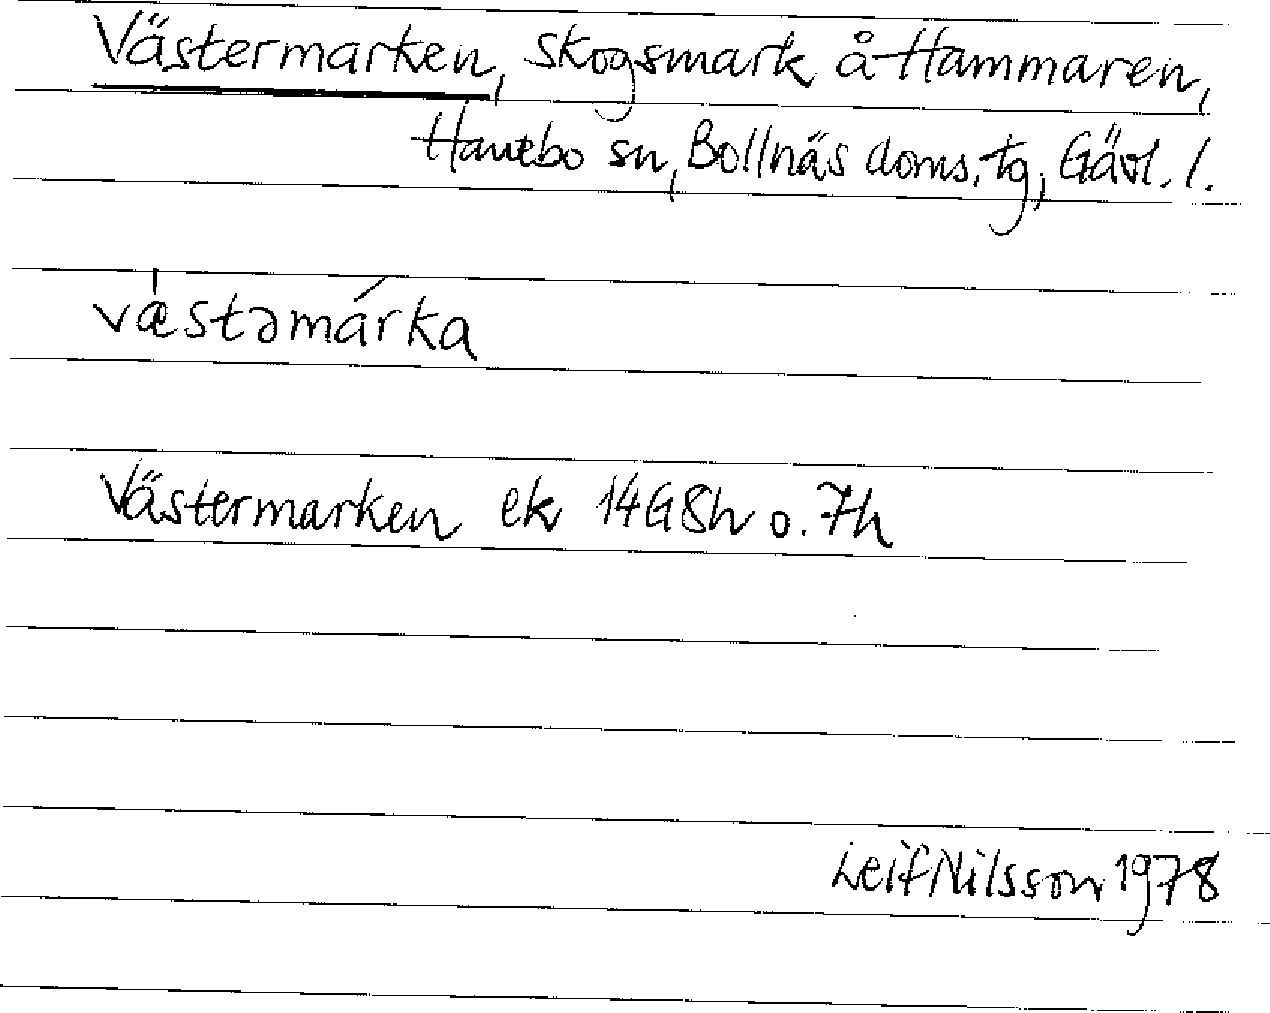 Västermarken, skogsmark å Hammaren,
Hanebo sn, Bollnäs doms. tg, Gävl. l.
væ̀stəmárka
Västermarken ek 14G8h o. 7h
Leif Nilsson 1978